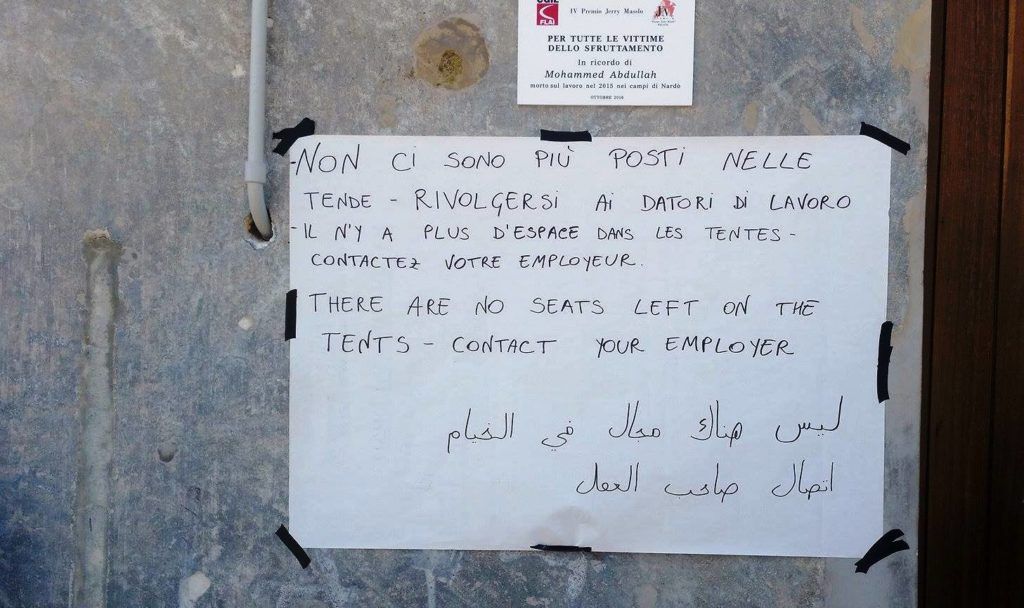 CGIL
FLAI
IV Premio Jerry Masslo
PER TUTTE LE VITTIME
DELLO SFRUTTAMENTO
In ricordo di
Mohammed Abdullah
morto sul lavoro nel 2015 nei campi di Nardò
OTTOBRE 2016
-NON CI SONO PIÙ POSTI NELLE
TENDE - RIVOLGERSI AI DATORI DI LAVORO
-IL N'Y A PLUS D'ESPACE DANS LES TENTES -
CONTACTEZ VOTRE EMPLOYEUR.
THERE ARE NO SEATS LEFT ON THE
TENTS - CONTACT YOUR EMPLOYER
ليس هناك مجال في الخيام
اتصال صاحب العمل